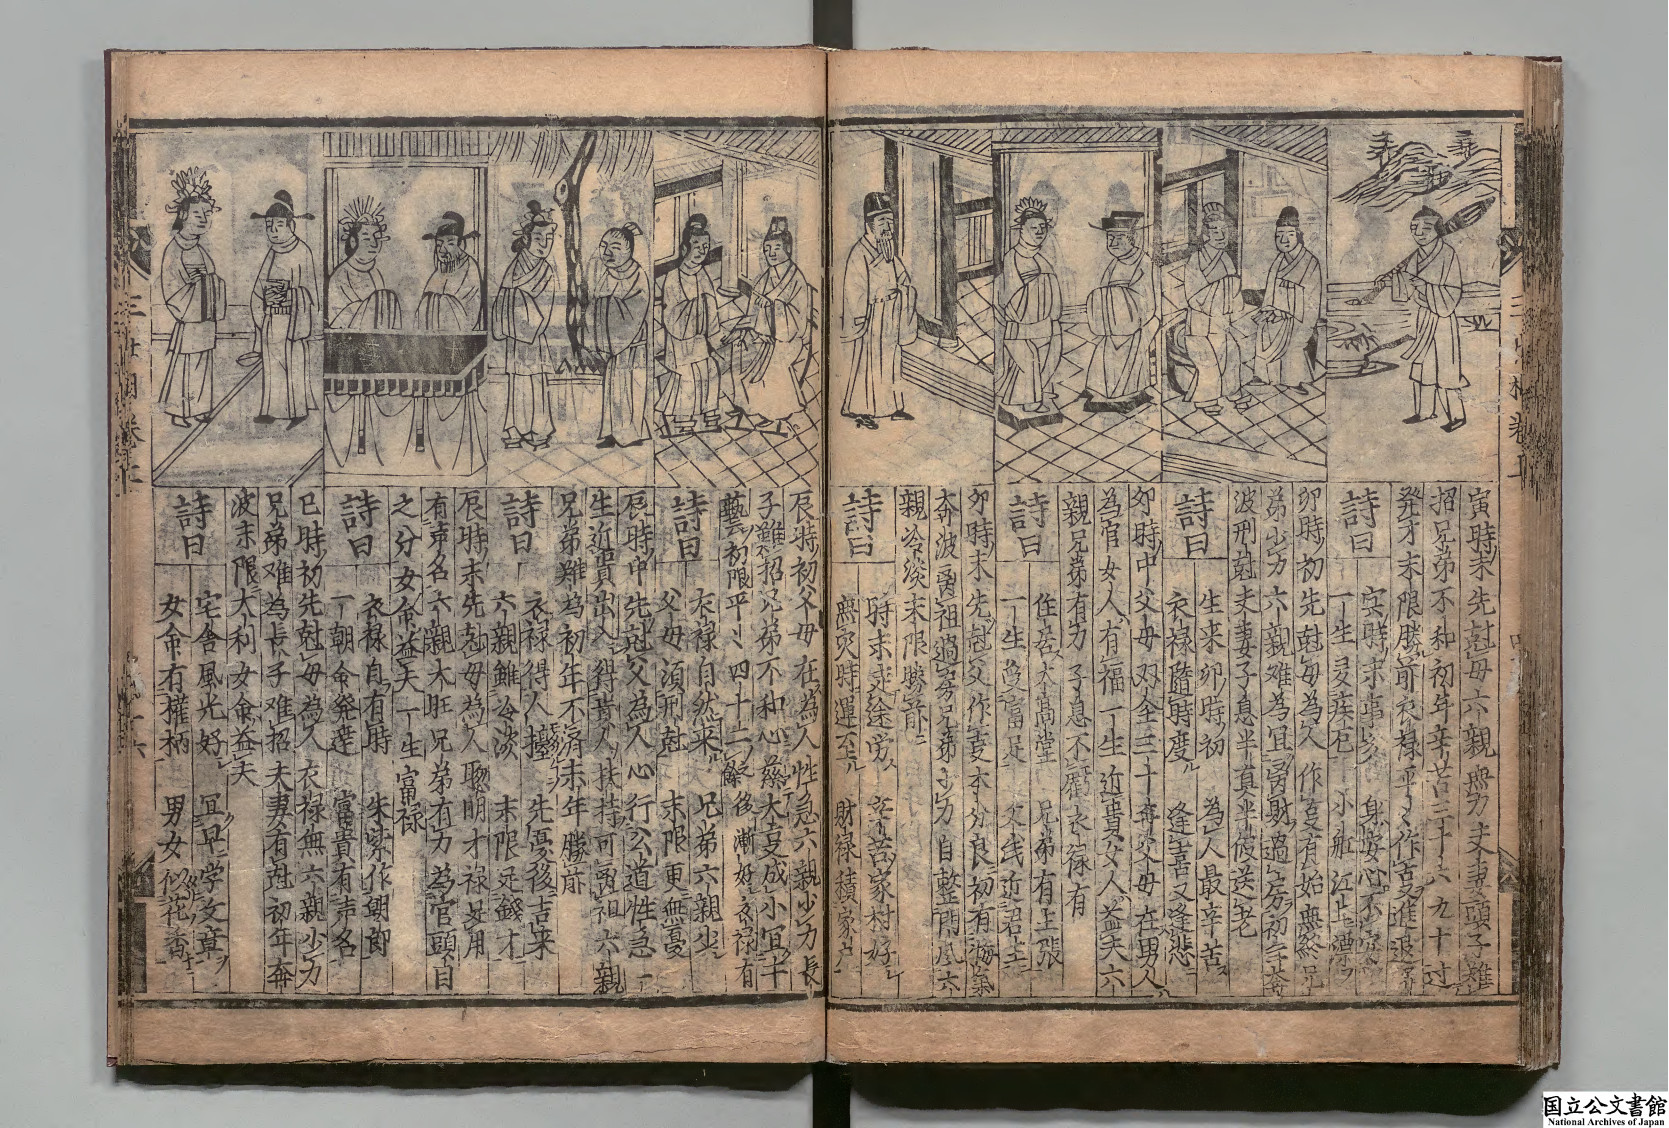 寅時末先尅母六親無力夫妻頭子難
招兄弟不和初年辛苦三十六九十过
発才末限勝前衣禄平々作苦進退
詩曰
安時未事 身安心不
一生 疾厄 小船江上
卯時初先尅母為人作事有始無終兄
弟少力六親难為冝 財過房初年
波刑尅夫妻子息半真半假送老
詩曰
生来卯時初 為人最辛苦
衣禄隨時度 逢喜又逢悲
卯時中父母双全三十奪父母在男人
為官女人有福一生近貴女人益夫六
親兄弟有力子息不虧衣禄有
詩曰
住居大高堂 兄弟有主張
一生 富足 父 近 
卯時末先尅父作事本分良初有
奔波 祖過房兄弟少力自整門風六
親冷淡末限勝前
詩曰
時末 途労 辛苦家村好
無灾時運至 財禄積家
辰時初父母在為人性急六親少力長
子雖招兄弟不和心慈大事成小冝十
藝初限平々四十二餘後漸好衣禄有
詩曰
衣禄自然来 兄弟六親少
父母須刑尅 末限更無憂
辰時中先尅父為人心行公道性急一
生近貴出入得貴人扶持可 祖六親
兄弟難為初年不濟末年勝前
詩曰
衣禄得人擡 先憂後吉来
六親雖冷淡 末限足錢才
辰時末先尅母為人聰明才禄足用
有声名六親大旺兄弟有力為官頭目
之分女命益夫一生富禄
詩曰
衣禄自有時 朱紫作朝郎
一朝命発達 富貴有声名
巳時初先尅母為人衣禄無六親少力
兄弟难為長子难招夫妻有尅初年奔
波末限大利女命益夫
詩曰
宅舎風光好 冝早学文章
女命有權柄 男女似花香
国立公文書館
National Archives of Japan